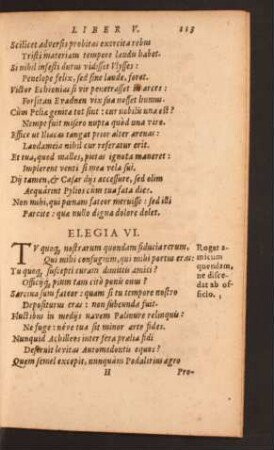 LIBER V. 113
Scilicet adversis probitas exercita rebus
Tristi materiam tempore laudis habet.
Si nihil infesti durus vidisset Ulysses:
Penelope felix, sed sine laude, foret.
Victor Echionias si vir penetrasset in arces:
Forsitan Evadnen vix sua nosset humus.
Cùm Pelia genitæ tot sint: cur nobilis una est?
Nempe fuit misero nupta quòd una viro.
Effice ut Iliacas tangat prior alter arenas:
Laodameia nihil cur referatur erit.
Et tua, quod malles, pietas ignota maneret:
Impierent venti si mea vela sui.
Dij tamen, & Cæsar dijs accessure, sed olim
Acquârint Pylios cùm tua fata dies.
Non mihi, qui pœnam fateor meruisse: sed illi
Parcite: quæ nullo digna dolore dolet.
ELEGIA VI.
TV quoq, nostrarum quondam fiducia rerum,
Qui mihi confugium, qui mihi portus eras:
Tu quoq, suscepti curam dimittis amici?
Officijq, pium tam citò ponis onus?
Sarcina sum fateor: quam si tu tempore nostro
Depositurus eras: non subeunda fuit.
Fluctibus in medijs navem Palinure relinquis:
Ne fuge: néve tua sit minor arte fides.
Nunquid Achilleos inter fera prælia fidi
Deseruit levitas Automedontis equos?
Quem semel excepit, nunquam Podalirius ægro
Rogat a-
micum
quendam,
ne disce-
dat ab of-
ficio.
H Pro-